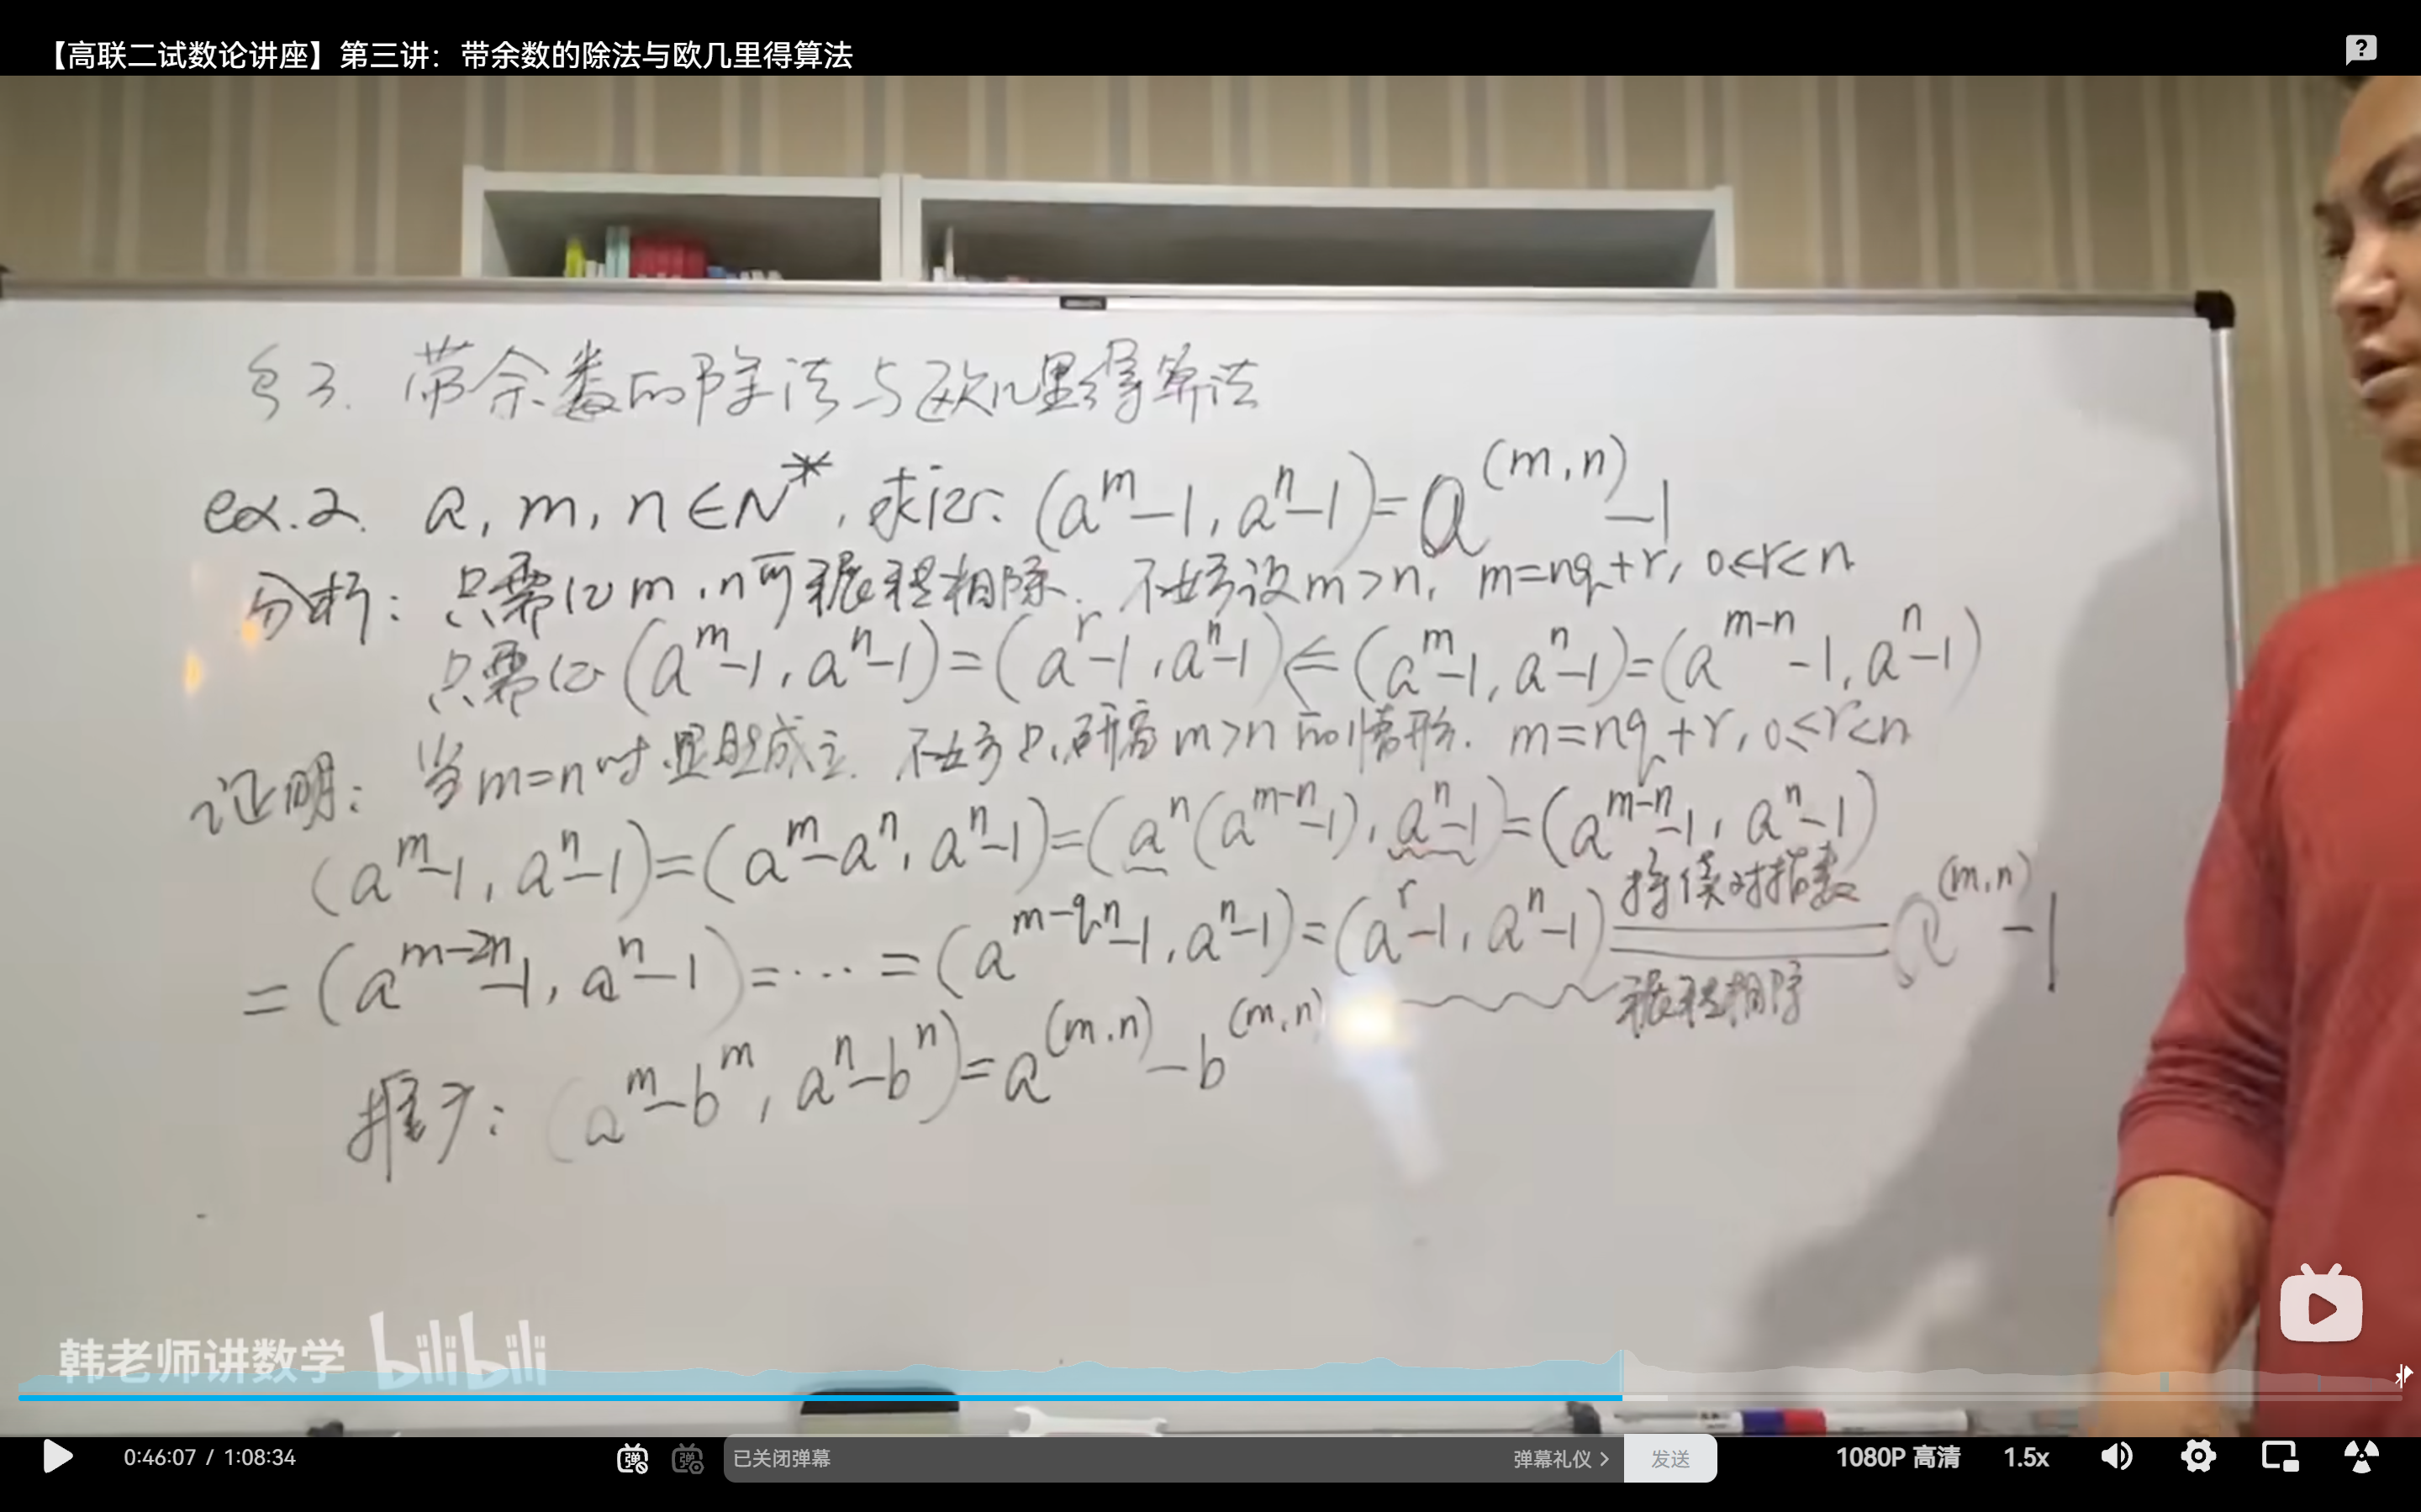 【高联二试数论讲座】第三讲：带余数的除法与欧几里得算法
§3. 带余数的除法与欧几里得算法
ex.2. a, m, n ∈ N*, 求证: (a^m-1, a^n-1) = a^(m,n) -1
分析: 只需证 m, n可辗转相除. 不妨设m>n, m=nq+r, 0≤r<n
只需证 (a^m-1, a^n-1) = (a^r-1, a^n-1) ⇐ (a^m-1, a^n-1) = (a^{m-n}-1, a^n-1)
证明: 当m=n时显然成立. 不妨只研究m>n的情形. m=nq+r, 0≤r<n
(a^m-1, a^n-1) = (a^m-a^n, a^n-1) = (a^n(a^{m-n}-1), a^n-1) = (a^{m-n}-1, a^n-1)
= (a^{m-2n}-1, a^n-1) = ··· = (a^{m-qn}-1, a^n-1) = (a^r-1, a^n-1) 持续对指数 辗转相除 = a^(m,n) -1
推广: (a^m-b^m, a^n-b^n) = a^(m,n) - b^(m,n)
韩老师讲数学 bilibili
0:46:07 / 1:08:34
已关闭弹幕
弹幕礼仪 >
发送
1080P 高清
1.5x